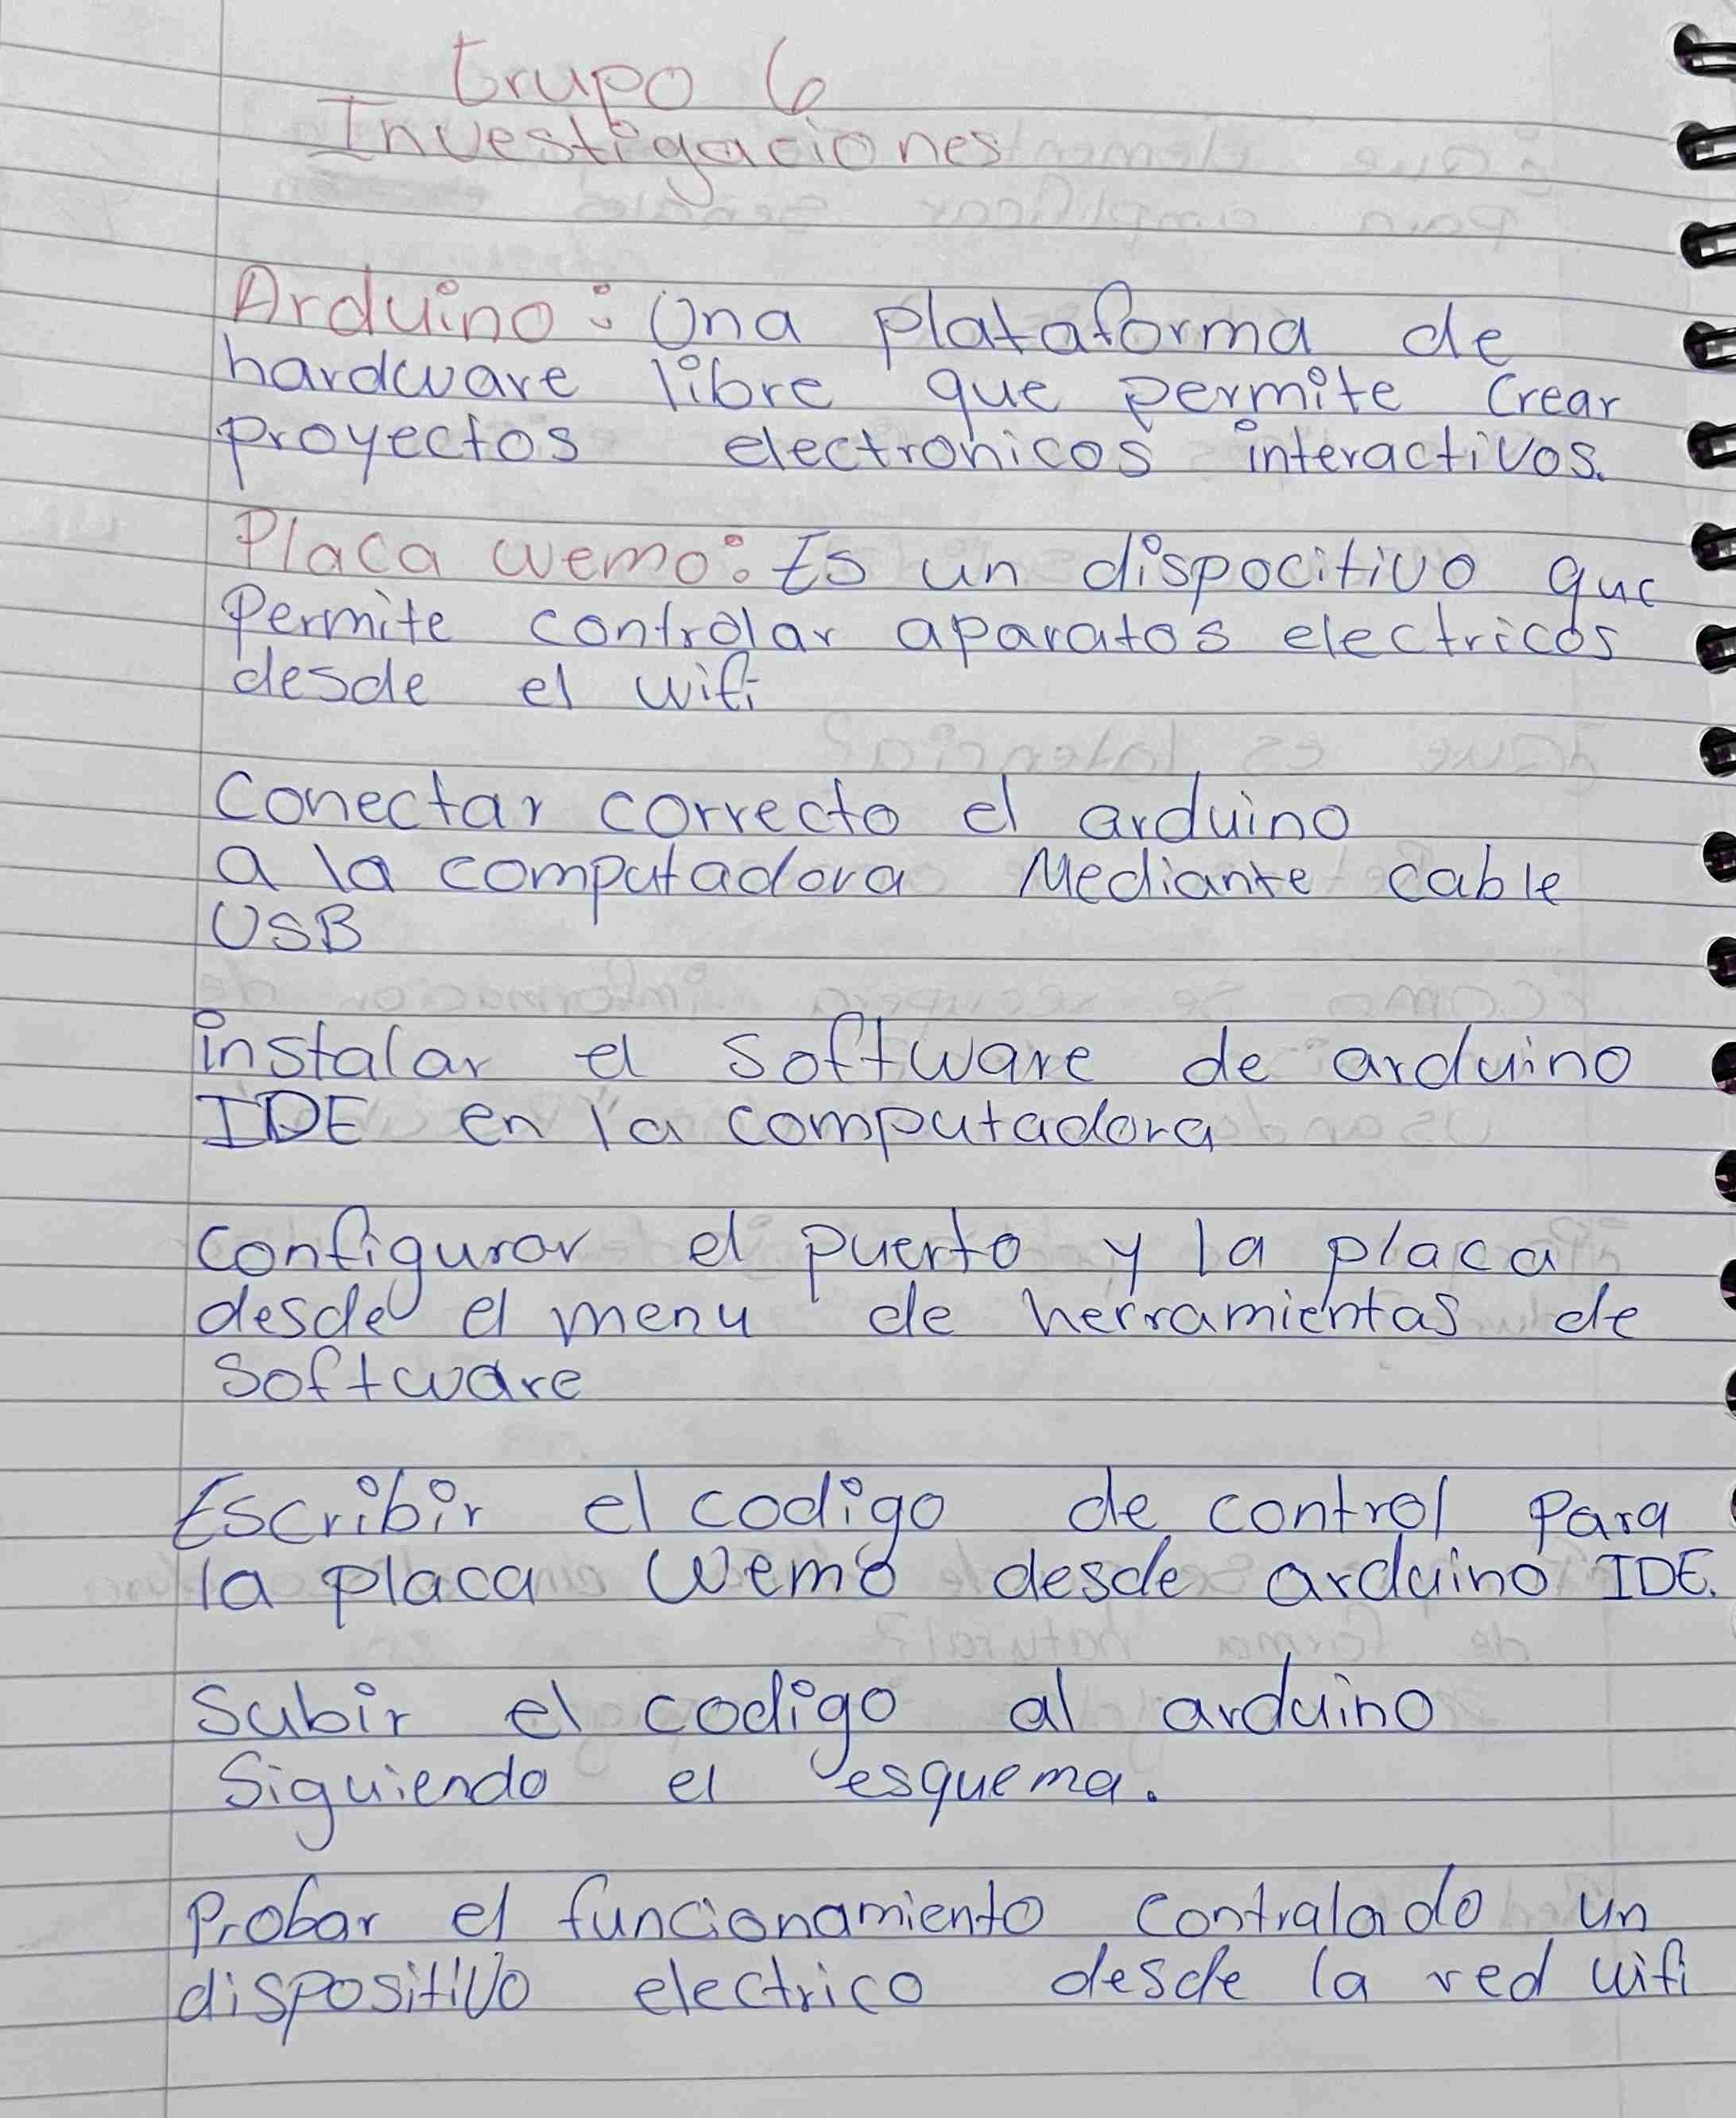 Grupo 6
Investigaciones
Arduino: Una plataforma de
hardware libre que permite crear
proyectos electronicos interactivos.
Placa wemo: Es un dispocitivo que
Permite controlar aparatos electricos
desde el wifi
Conectar correcto el arduino
a la computadora Mediante cable
USB
instalar el software de arduino
IDE en la computadora
Configurar el puerto y la placa
desde el menu de herramientas de
software
Escribir el codigo de control para
la placa wemo desde arduino IDE.
Subir el codigo al arduino
Siguiendo el esquema.
Probar el funcionamiento contralado un
dispositivo electrico desde la red wifi